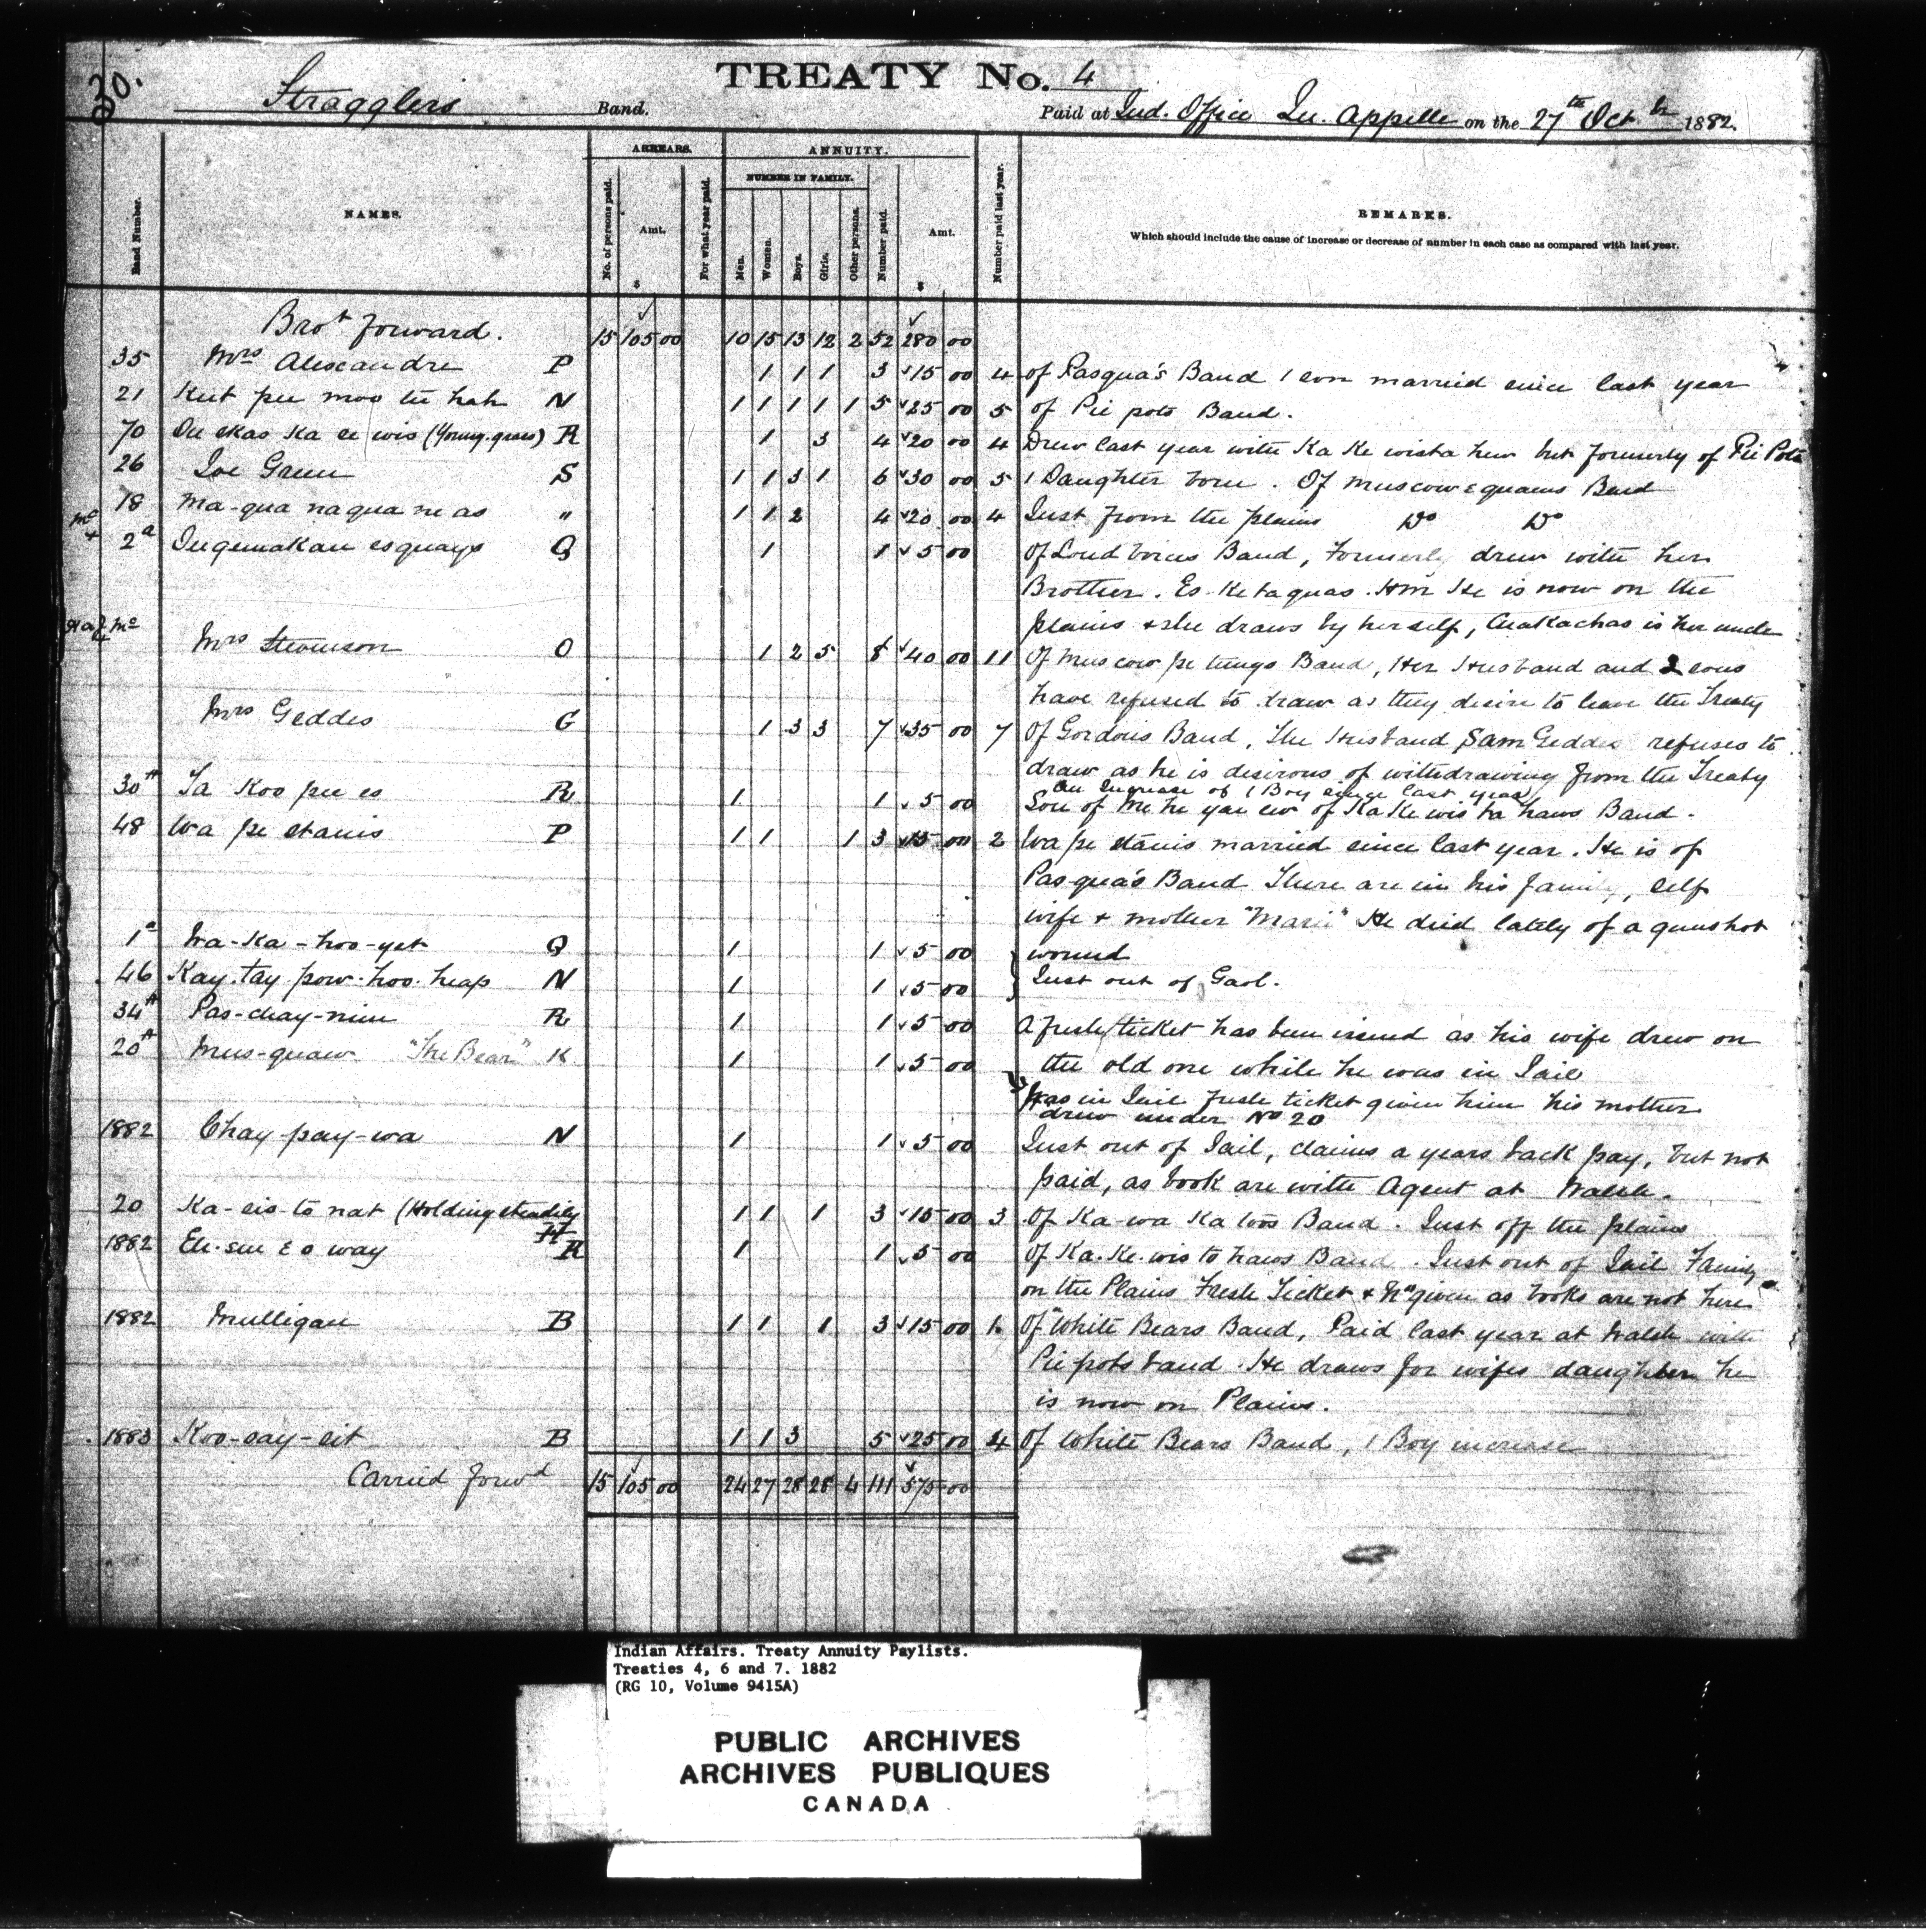 20.
TREATY No. 4
Stragglers Band.
Paid at Ind. Office Qu. Appelle on the 27th Oct. 1882.
Band Number.
NAMES.
ARREARS.
No. of persons paid.
Amt.
$
For what year paid.
ANNUITY.
NUMBER IN FAMILY.
Men.
Women.
Boys.
Girls.
Other persons.
Number paid.
Amt.
$
Number paid last year.
REMARKS.
Which should include the cause of increase or decrease of number in each case as compared with last year.
Brot forward. 15 105 00 10 15 13 12 2 52 280 00
35 Mrs Alexandre P 1 1 1 3 15 00 4 of Pasqua's Band 1 son married since last year
21 Keet pee moo tu hah N 1 1 1 1 1 5 25 00 5 of Pie pots Band.
70 (Young grass) R 1 3 4 20 00 4 Drew last year with Ka Ke wista hew but formerly of Pie Pots
26 Joe Green S 1 1 3 1 6 30 00 5 1 Daughter born. Of Muscow equans Band
18 Ma-qua naqua ne as " 1 1 2 4 20 00 4 Just from the plains Do Do
2a esquays Q 1 1 5 00 Of Loud Voices Band, Formerly drew with her
Brother. Es-Ketaquas. He is now on the
plains & she draws by herself, is her uncle
Mrs Stevenson O 1 2 5 8 40 00 11 Of Muscow pe tungs Band, Her Husband and 2 sons
have refused to draw as they desire to leave the Treaty
Mrs Geddes G 1 3 3 7 35 00 7 Of Gordons Band, The Husband Sam Geddes refuses to
draw as he is desirous of withdrawing from the Treaty
An increase of 1 Boy since last year
30A Ta Koo pee es R 1 1 5 00 Son of Me he yau ew of Ka Ke wis ta haws Band.
48 Wa pe stanis P 1 1 1 3 15 00 2 Wa pe stanis married since last year. He is of
Pasqua's Band There are in his family, self
wife & mother "Marie" He died lately of a gunshot
wound
1a Wa-Ka-hoo-yet Q 1 1 5 00
46 Kay-tay-pow-hoo-heap N 1 1 5 00 Just out of Gaol.
34A Pas-chay-nin R 1 1 5 00 A fresh ticket has been issued as his wife drew on
the old one while he was in Jail
20A Mus-quaw "The Bear" K 1 1 5 00 Was in Jail fresh ticket given him his mother
drew under No 20
1882 Chay-pay-wa N 1 1 5 00 Just out of Jail, claims a years back pay, but not
paid, as book are with Agent at Walsh.
20 Ka-sis-to nat (Holding steadily 1 1 1 3 15 00 3 Of Ka-wa Ka toos Band. Just off the plains
1882 R 1 1 5 00 Of Ka-Ke-wis to haws Band. Just out of Jail Family
on the Plains Fresh Ticket & No given as books are not here
1882 Mulligan B 1 1 1 3 15 00 1 Of White Bears Band, Paid last year at Walsh with
Pie pots band. He draws for wifes daughter he
is now on Plains.
1883 Koo-say-sit B 1 1 3 5 25 00 4 Of White Bears Band, 1 Boy increase
Carried forwd 15 105 00 24 27 28 28 4 111 575 00
Indian Affairs. Treaty Annuity Paylists.
Treaties 4, 6 and 7. 1882
(RG 10, Volume 9415A)
PUBLIC ARCHIVES
ARCHIVES PUBLIQUES
CANADA